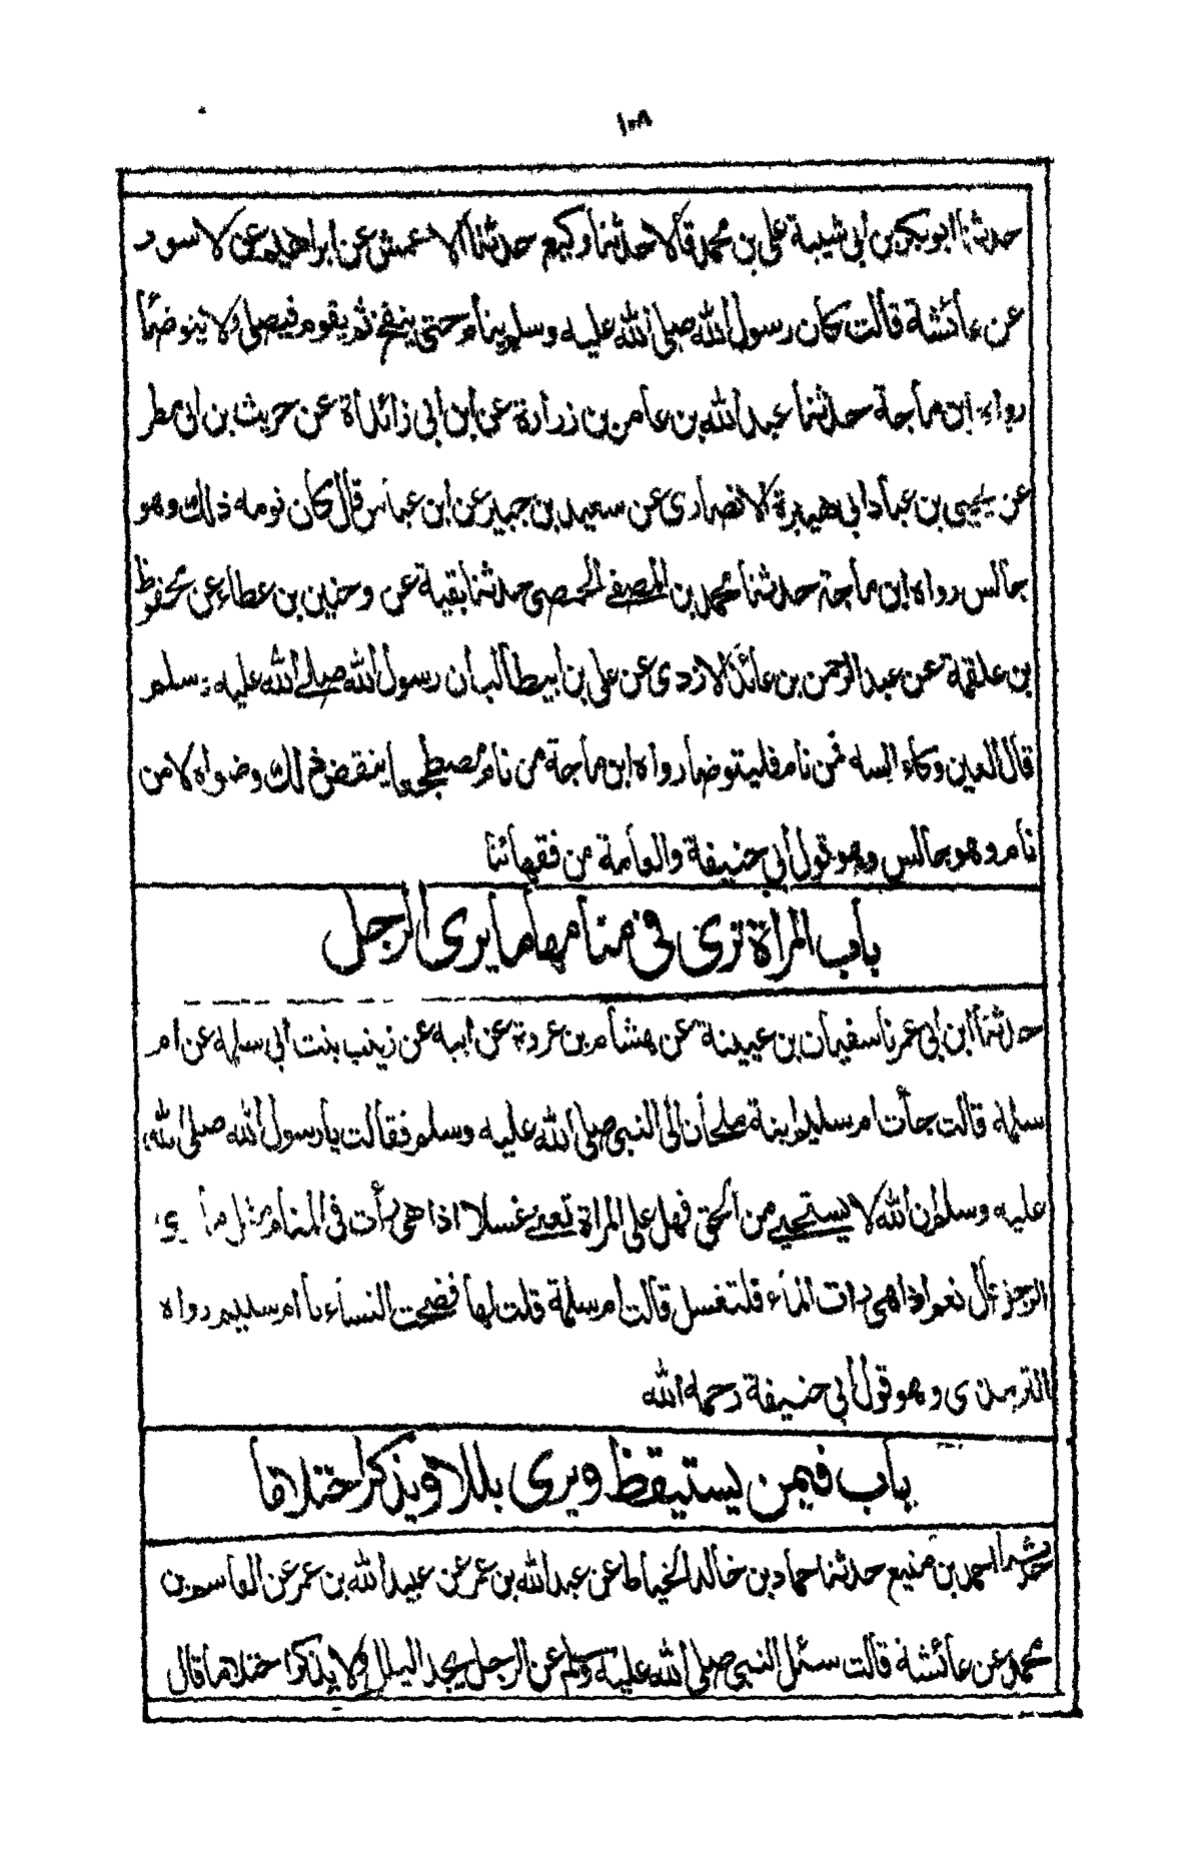 ١٠٨
حدثنا ابوبكر بن أبي شيبة علي بن محمد قالا حدثنا وكيع حدثنا الاعمش عن ابراهيم عن لاسود
عن عائشة قالت كان رسول الله صلى الله عليه وسلم ينام حتى ينفخ ثم يقوم فيصلي ولا يتوضأ
رواه ابن ماجة حدثنا عبد الله بن عامر بن زرارة عن ابن ابي زائداة عن حريث بن ابي مطر
عن يحيى بن عباد ابي هبيرة الانصاري عن سعيد بن جبير عن ابن عباس قال كان نومه ذلك وهو
جالس رواه ابن ماجة حدثنا محمد بن المصفے الحمصي حدثنا بقية عن وحنين بن عطاء عن محفوظ
بن علقمة عن عبد الرحمن بن عائذ الازدي عن علي بن ابيطالب ان رسول الله صلے الله عليه وسلم
قال العين وكاء السه فمن نام فليتوضأ رواه ابن ماجة من نام مضطجعا ينقض ذلك وضواه لا من
نام وهو جالس وهو قول أبي حنيفة والعامة من فقهائنا
باب المراة ترى في منامها ما يرى الرجل
حدثنا ابن ابي عمر نا سفيان بن عيينة عن هشام بن عروة عن ابيه عن زينب بنت ابي سلمة عن ام
سلمة قالت جأت ام سليم ابنة ملحان الى النبي صلى الله عليه وسلم فقالت يا رسول الله صلى الله
عليه وسلم ان الله لا يستحيے من الحق فهل على المراة تعنے غسلا اذا هي رأت في المنام مثل ما يرى
الرجل قال نعم اذا هي رات الماء فلتغسل قالت ام سلمة قلت لها فضحت النساء يا ام سليم رواه
الترمذي وهو قول ابي حنيفة رحمه الله
باب فيمن يستيقظ ويرى بللا ويذكر احتلاما
حدثنا احمد بن منيع حدثنا حماد بن خالد الخياط عن عبد الله بن عمر عن عبيد الله بن عمر عن القاسم بن
محمد عن عائشة قالت سئل النبي صلى الله عليه وسلم عن الرجل يجد البلل ولا يذكر احتلاما قال